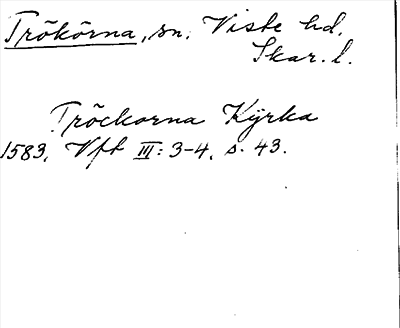 Trökörna, sn. Viste hd.
Skar. l.
Tröckorna Kÿrka
1583, Vft III: 3-4, s. 43.